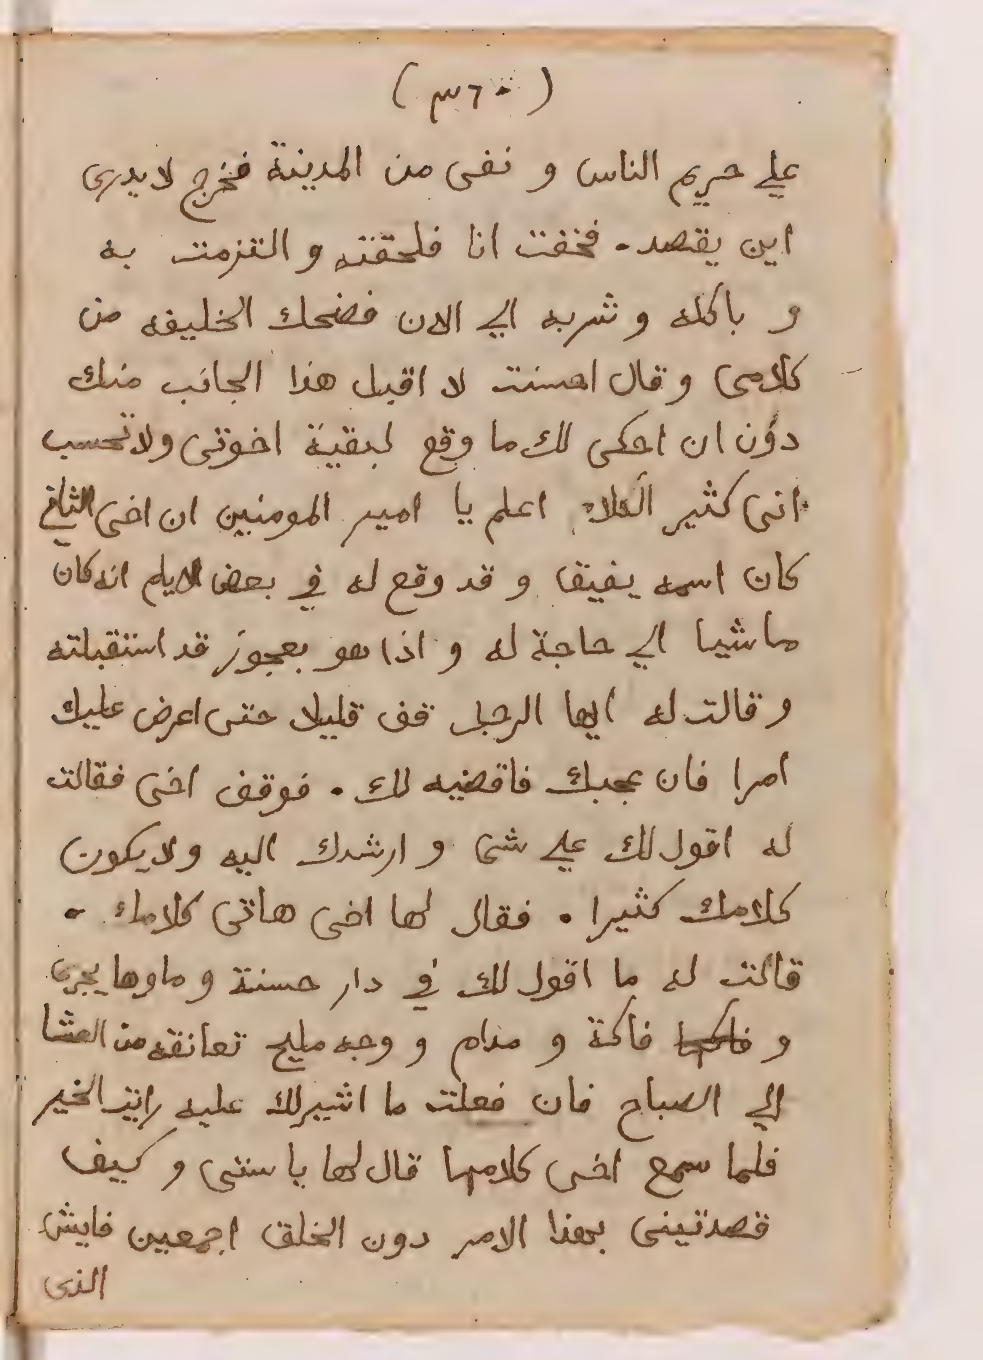 (٣٦٠)
علي حريم الناس و نفى من المدينة فخرج لا يدرى
اين يقصد. فخفت انا فلحقته و التزمت به
و باكله و شربه الي الان فضحك الخليفه من
كلامى و قال احسنت لا اقبل هذا الجانب منك
دون ان احكى لك ما وقع لبقية اخوتى ولا تحسب
انى كثير الكلام اعلم يا امير المومنين ان اخى الثاني
كان اسمه يفيق و قد وقع له في بعض الايام انه كان
ماشيا الي حاجة له و اذا هو بعجوز قد استقبلته
و قالت له ايها الرجل قف قليلا حتى اعرض عليك
امرا فان عجبك فاقضيه لك. فوقف اخى فقالت
له اقول لك علي شى و ارشدك اليه ولا يكون
كلامك كثيرا. فقال لها اخى هاتى كلامك.
قالت له ما اقول لك في دار حسنة و ماوها يجرى
و فاكة و مدام و وجه مليح تعانقه من العشا
الي الصباح فان فعلت ما اشير لك عليه رايت الخير
فلما سمع اخى كلامها قال لها يا ستى و كيف
قصدتينى بهذا الامر دون الخلق اجمعين فايش
الذى